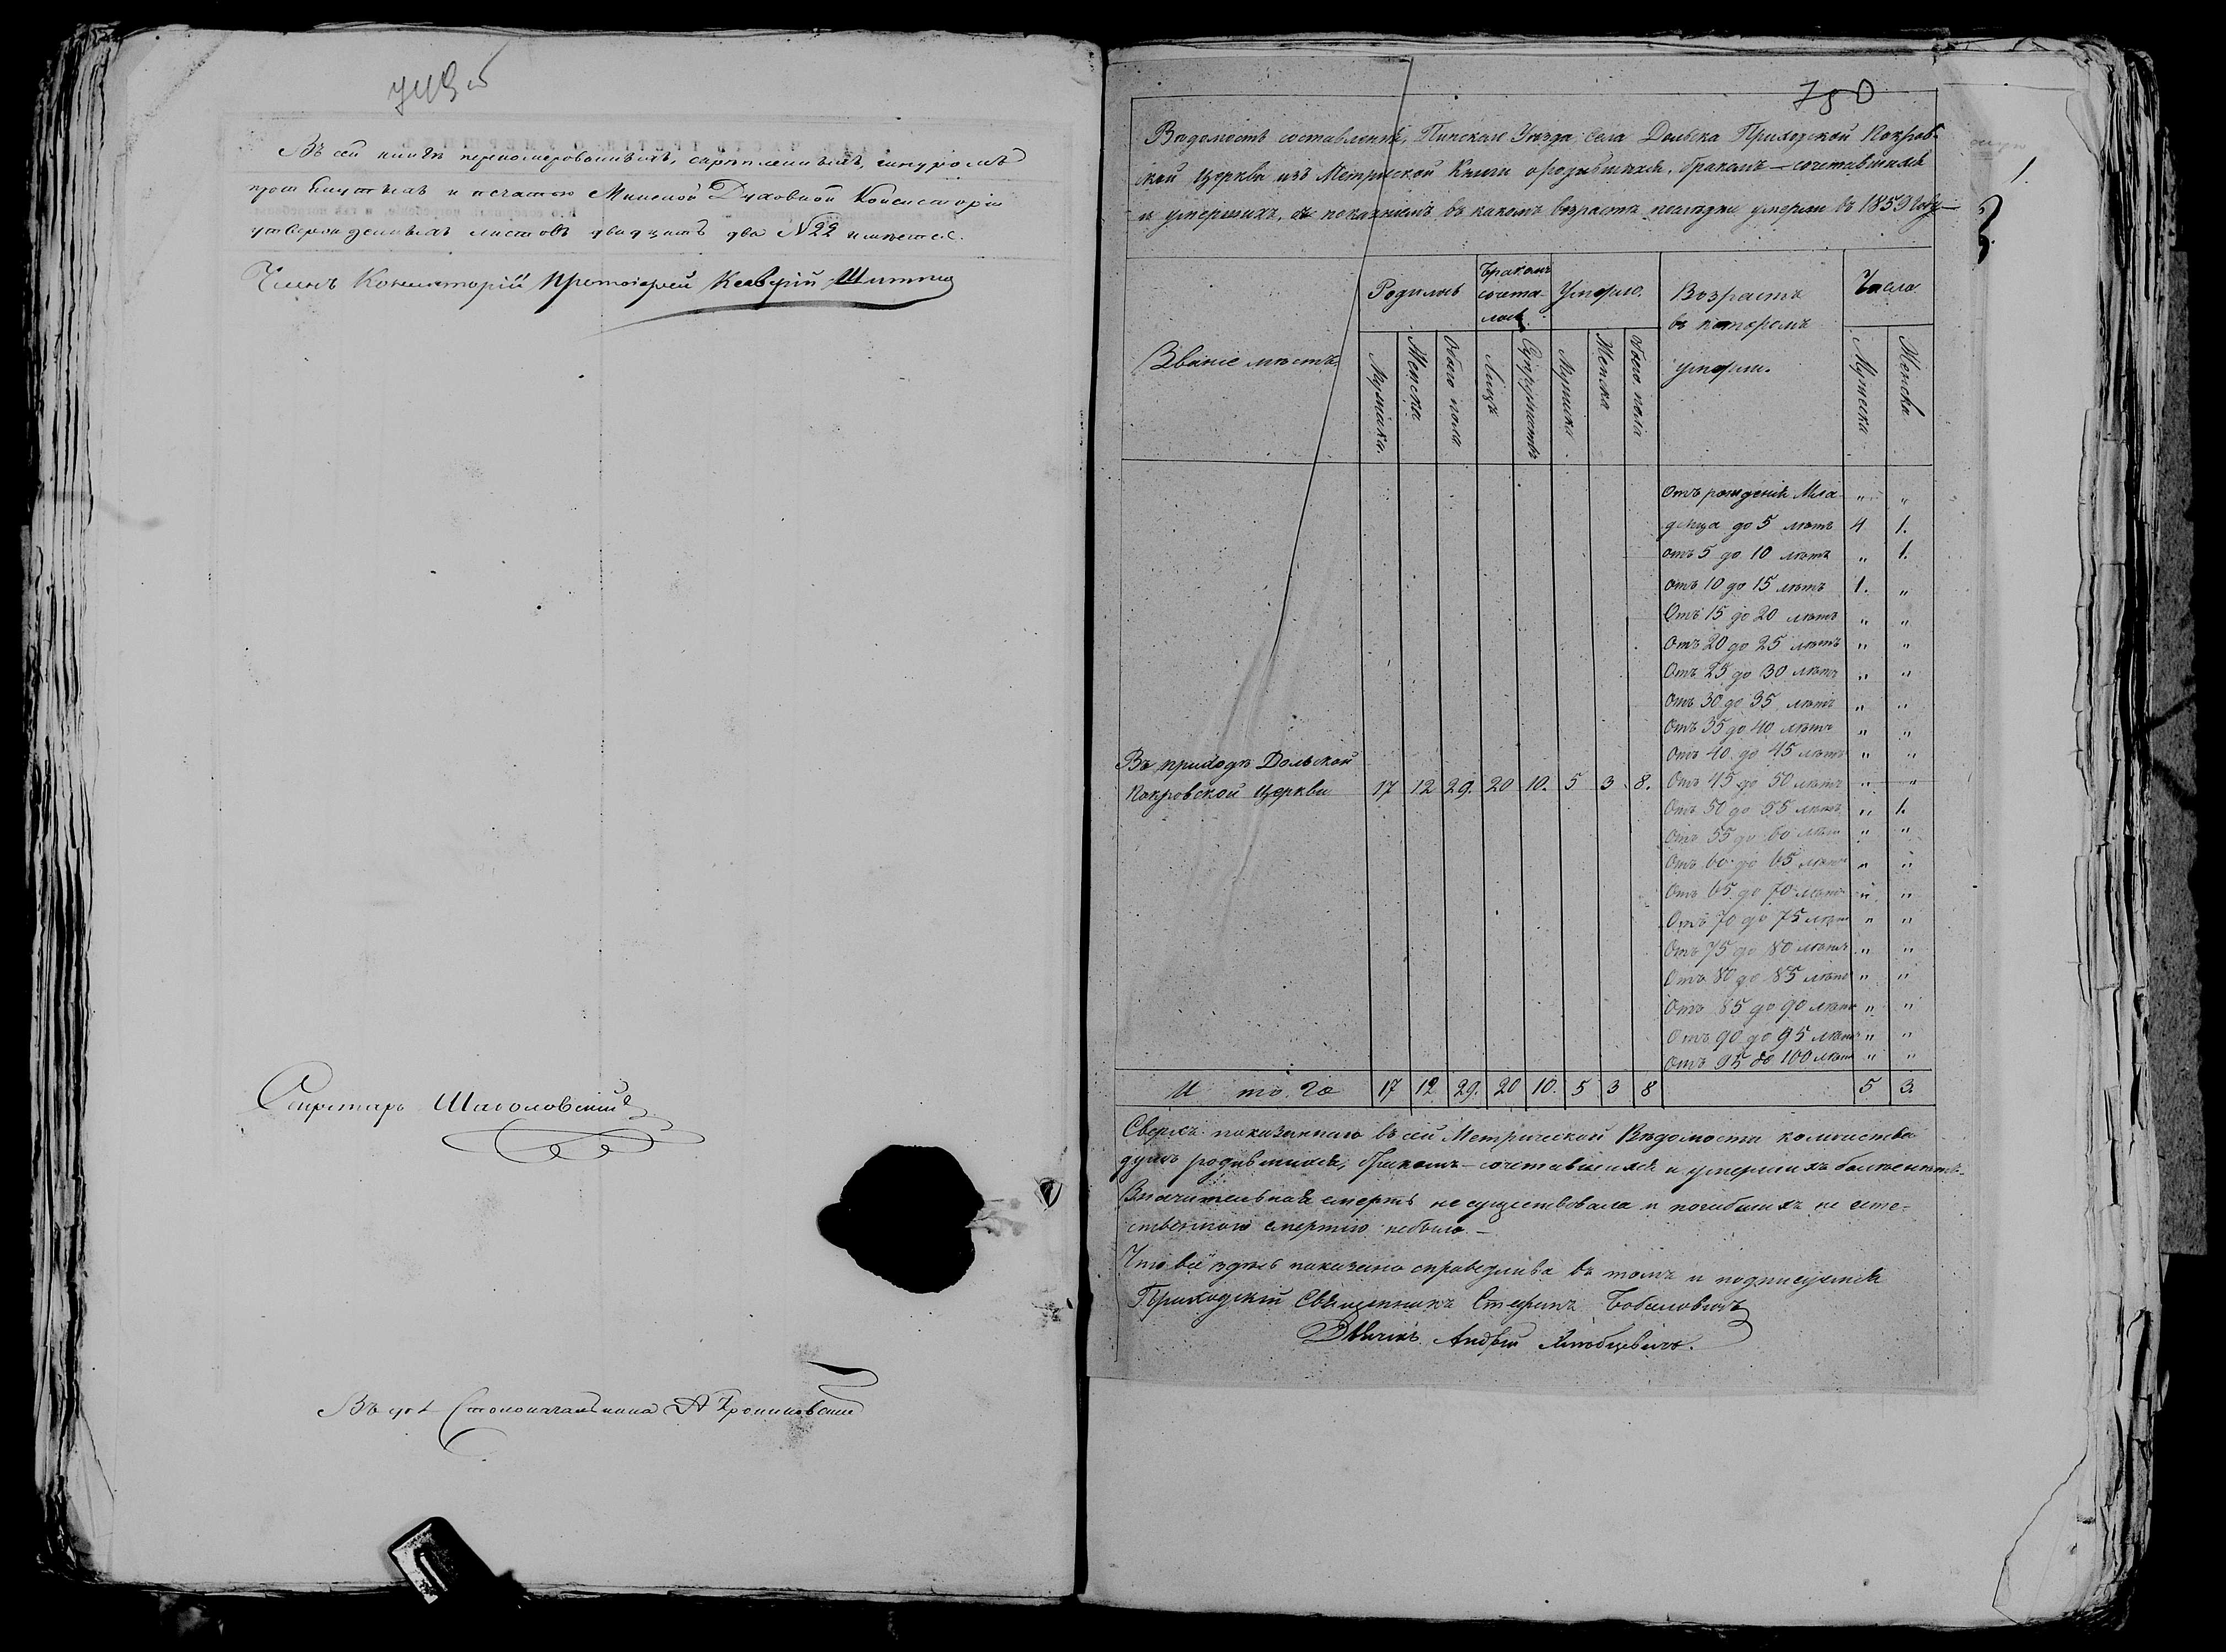 Въ сей книгѣ перномерованныхъ, скрепленныхъ, шнуромъ
прошнутыхъ и печатью Минской Духовной Консисторіи
утвержденныхъ листовъ двадцать два №22 имѣется.
Членъ Консисторіи Протоіерей
Секретарь
Въ дол Столоначальника А
780
1.
Вѣдомость составленна, Пинскаго Уѣзда, Села Дольска Приходской Покров-
ской Церкви изъ Метрической Книги о родившихся, бракомъ-сочетавшихся
и умершихъ, съ показаніемъ, въ какомъ возрастѣ послѣдніи умерли въ 1859 году
Званіе мѣстъ
Родилось
Бракомъ сочета-
лось
Умерло.
Возрастъ
въ которомъ
умерли.
Число
Мужеска.
Женска
Обоего пола
Лицъ
Супружествъ
Мужеска
Женска
Обоего пола
Мужеска
Женска
Отъ рожденія Мла- " "
денца до 5 лѣтъ 4 1.
Отъ 5 до 10 лѣтъ " 1.
Отъ 10 до 15 лѣтъ 1. "
Отъ 15 до 20 лѣтъ " "
Отъ 20 до 25 лѣтъ " "
Отъ 25 до 30 лѣтъ " "
Отъ 30 до 35 лѣтъ " "
Отъ 35 до 40 лѣтъ " "
Отъ 40 до 45 лѣтъ " "
Въ приходѣ Дольской
Покровской Церкви 17 12 29. 20 10. 5 3 8. Отъ 45 до 50 лѣтъ " "
Отъ 50 до 55 лѣтъ " 1.
Отъ 55 до 60 лѣтъ " "
Отъ 60 до 65 лѣтъ " "
Отъ 65 до 70 лѣтъ " "
Отъ 70 до 75 лѣтъ " "
Отъ 75 до 80 лѣтъ " "
Отъ 80 до 85 лѣтъ " "
Отъ 85 до 90 лѣтъ " "
Отъ 90 до 95 лѣтъ " "
Отъ 95 до 100 лѣтъ " "
И то го 17 12 29. 20 10. 5 3 8 5 3.
Сверхъ показаннаго въ сей Метрической Вѣдомости количества
душъ родившихся, бракомъ-сочетавшихся и умершихъ
Значительная смерть не существовала и погибшихъ не есте-
ственною смертію небыло.-
Что всё здѣсь показано справедливо въ томъ и подписуемся
Приходскій Священникъ Стефанъ
Дьячикъ Андрей